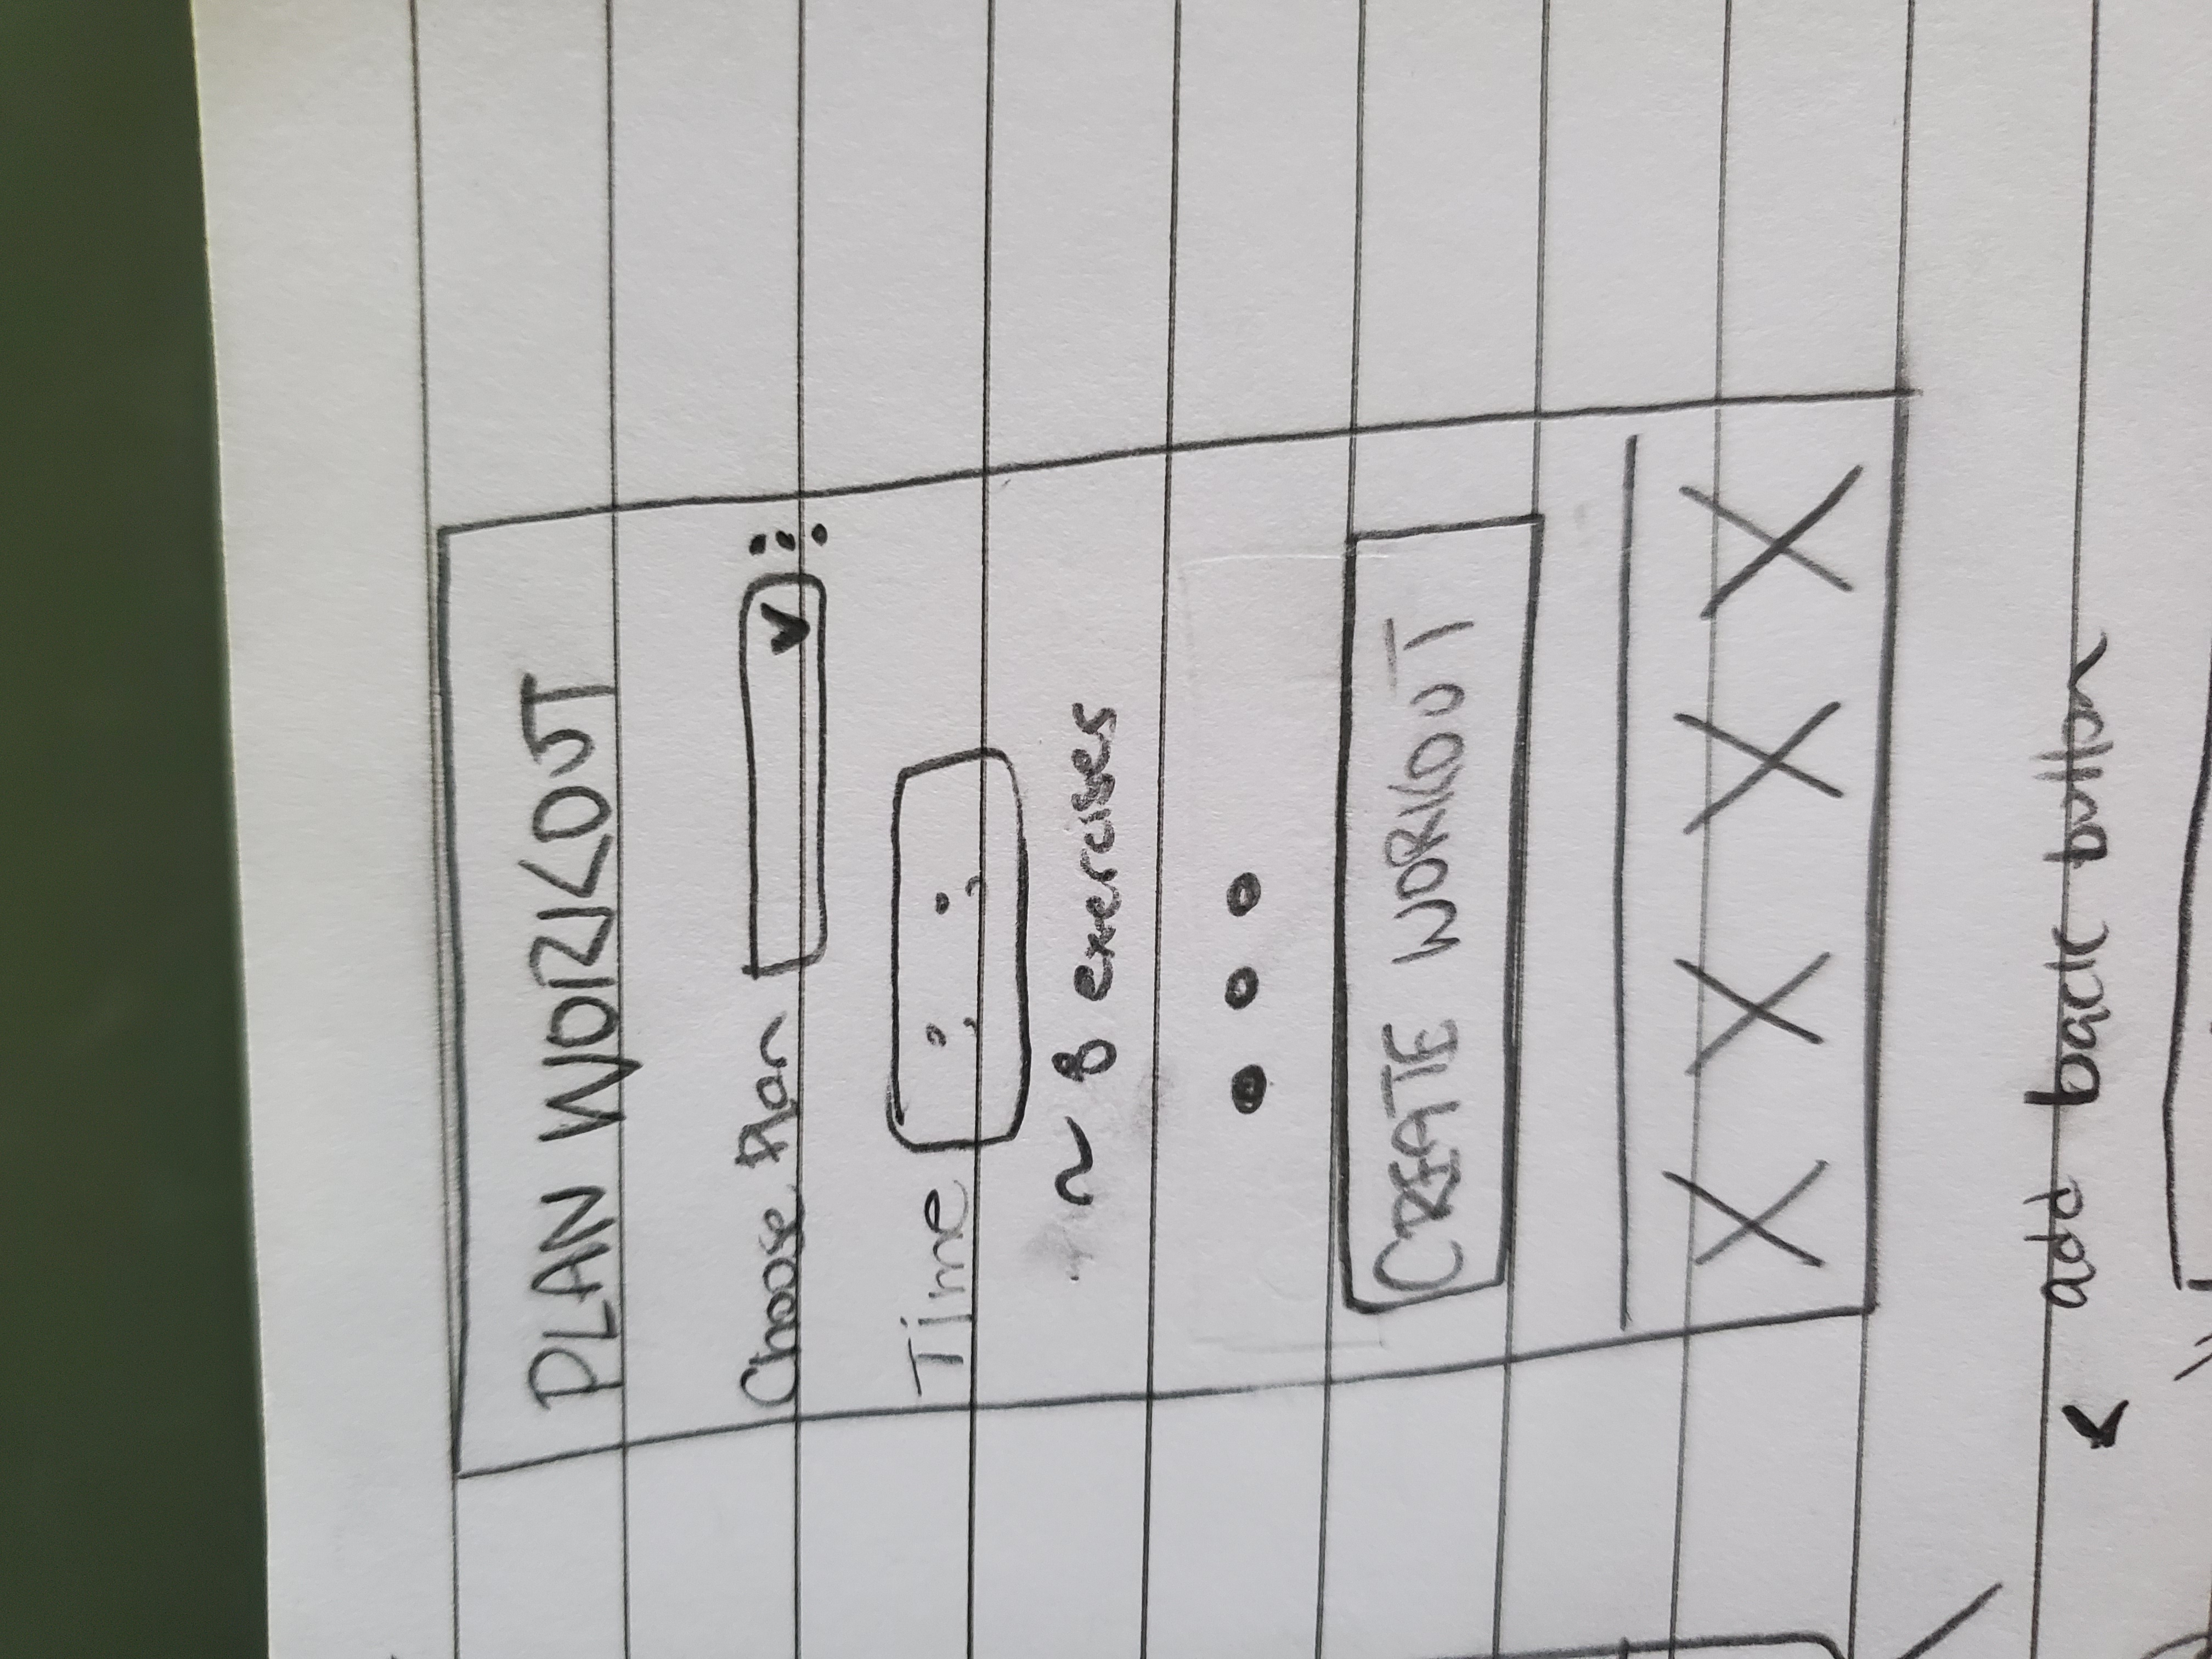 PLAN WORKOUT
Choose Plan
Time : :
~ 8 exercises
CREATE WORKOUT
X X X X
< add back button